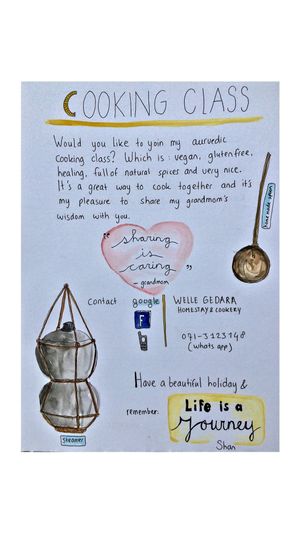 COOKING CLASS
Would you like to yoin my aurvedic
cooking class? Which is: vegan, glutenfree,
healing, full of natural spices and very nice.
It's a great way to cook together and it's
my pleasure to share my grandmom's
wisdom with you.
"sharing
is
caring"
- grandmom
home made spoon
contact google WELLE GEDARA
HOMESTAY & COOKERY
F
071-3123148
(whats app)
Have a beautiful holiday &
remember: Life is a
Journey
Shan
steamer